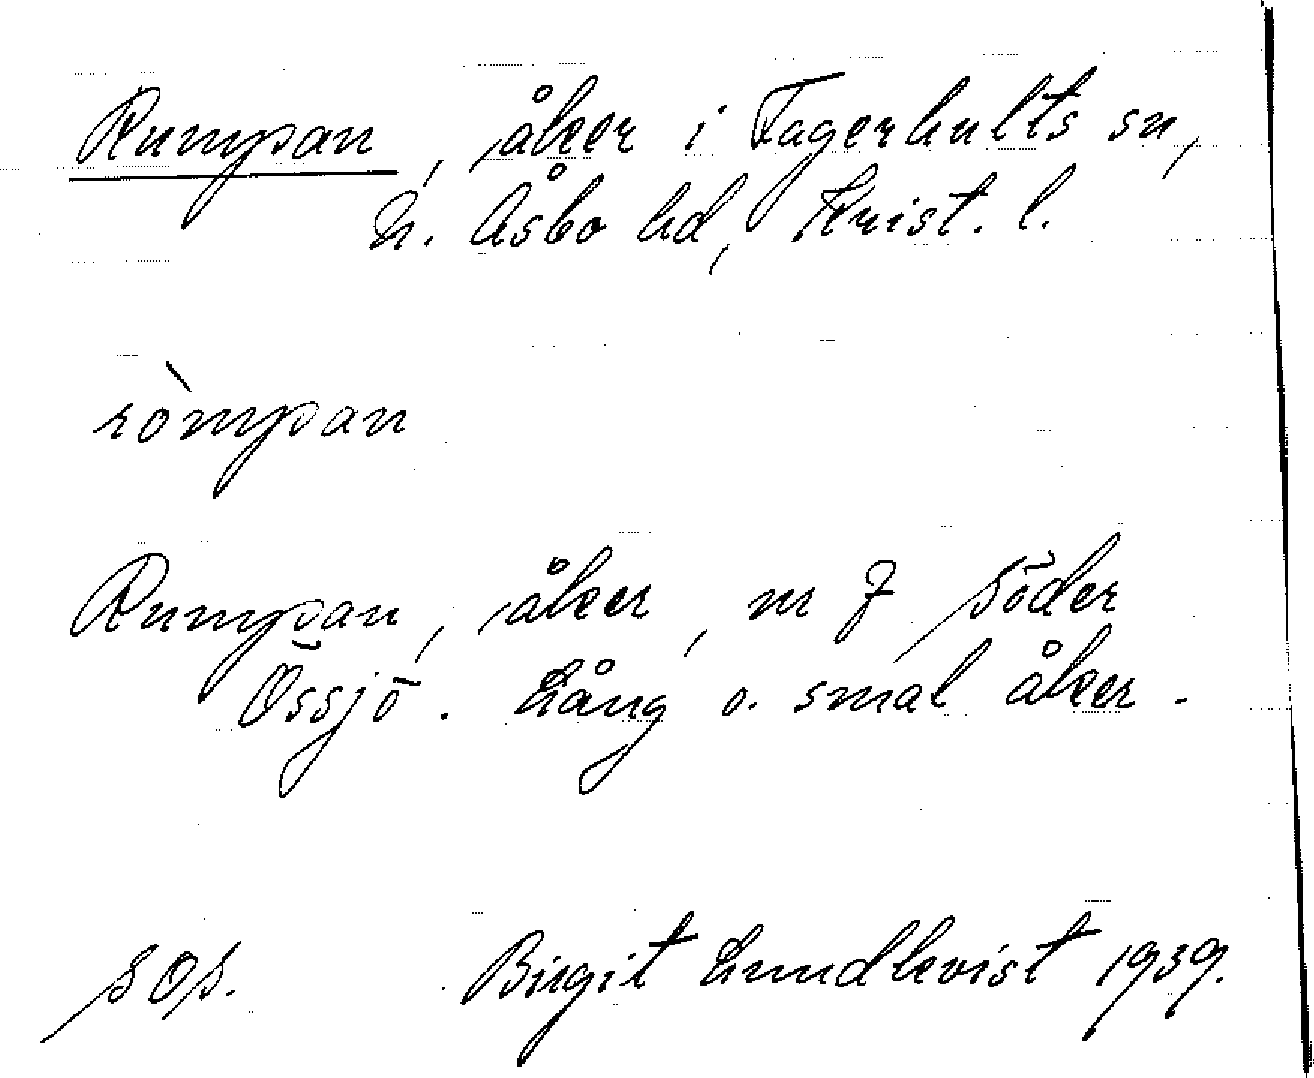 Rumpan, åker i Fagerhults sn,
N. Åsbo hd, Krist. l.
ròmpan
Rumpan, åker, nr 7 Söder
Össjö. Lång o. smal åker.
sos. Birgit Lundkvist 1939.